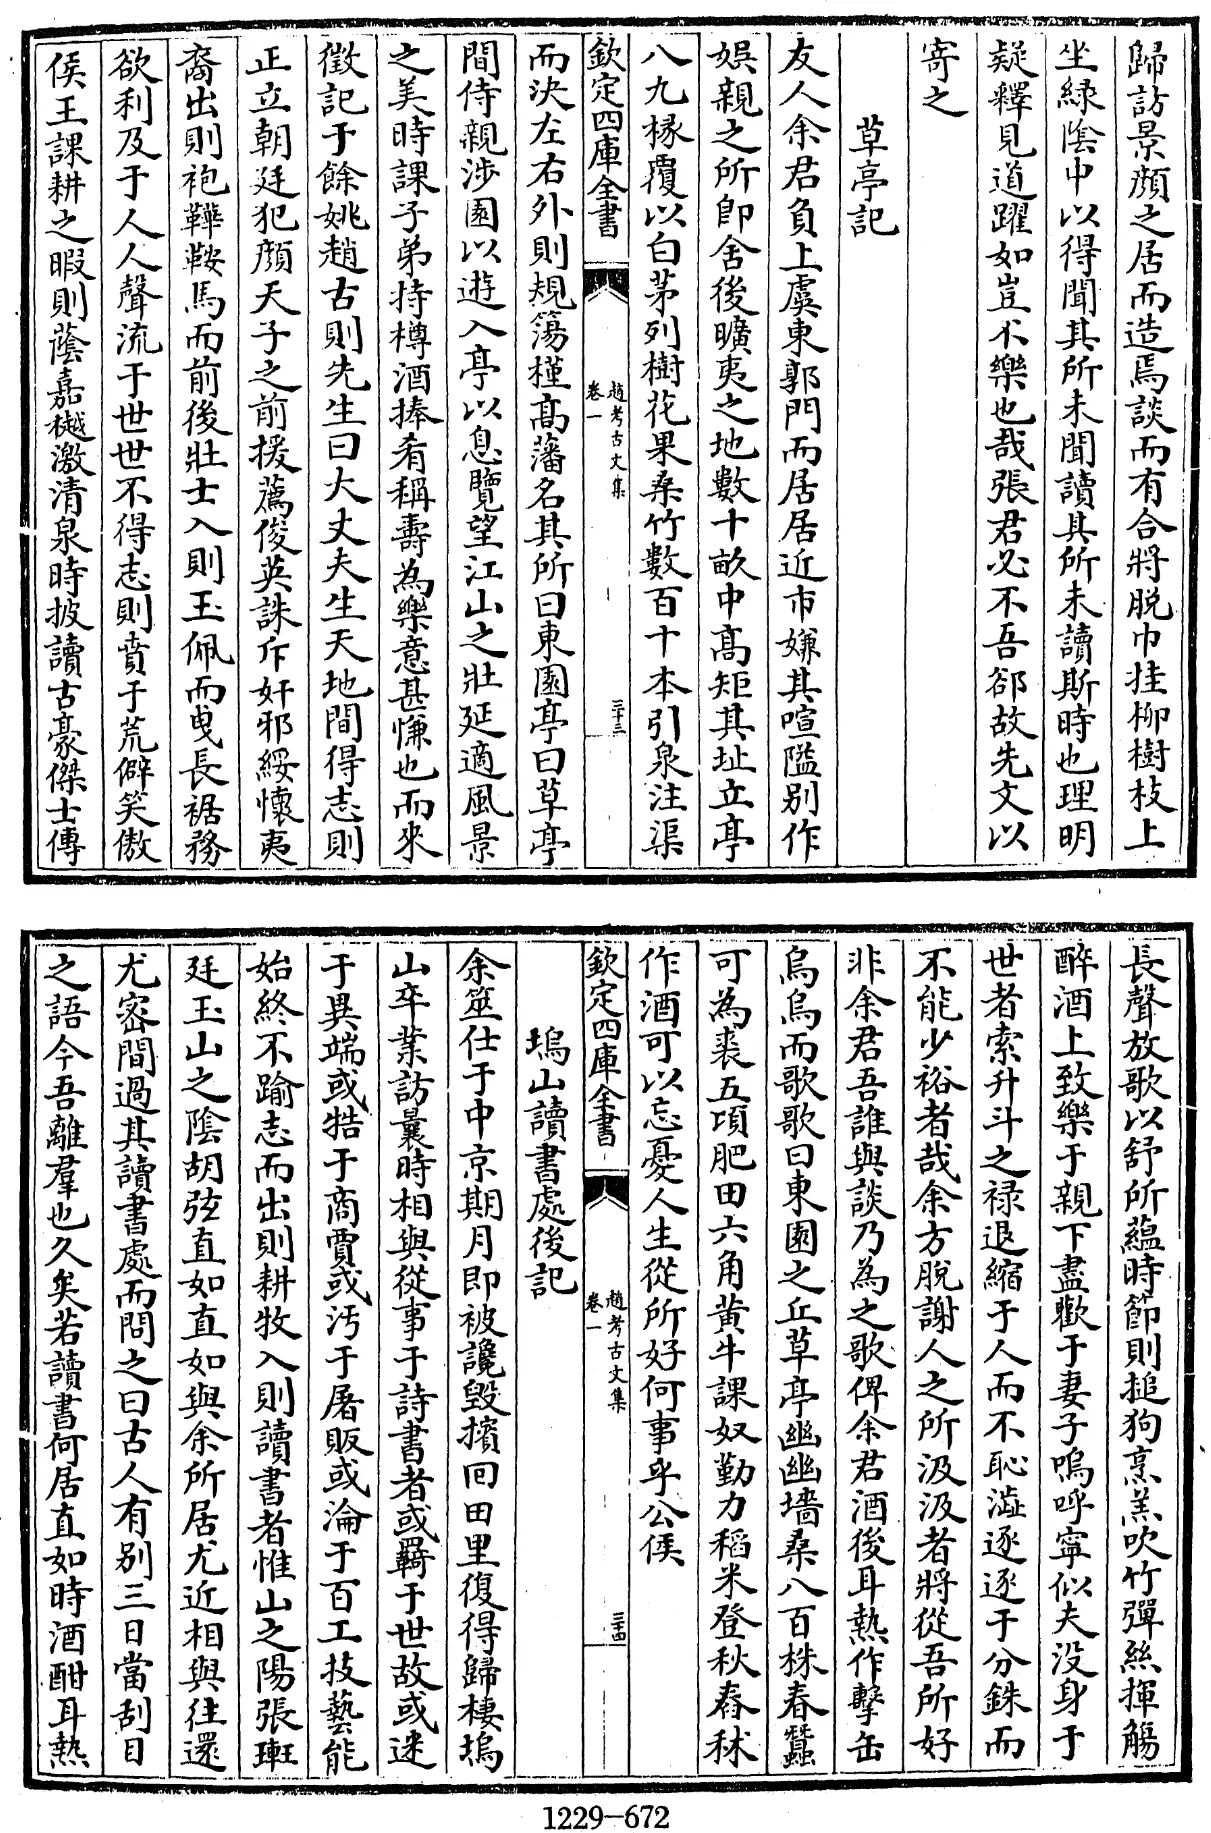 歸訪景顔之居而造焉談而有合將脱巾挂柳樹枝上
坐緑陰中以得聞其所未聞讀其所未讀斯時也理明
疑釋見道躍如豈不樂也哉張君必不吾郤故先文以
寄之
草亭記
友人余君負上虞東郭門而居居近市嫌其喧隘别作
娯親之所卽舍後曠夷之地數十畝中髙矩其址立亭
八九椽覆以白茅列樹花果桑竹數百十本引泉注渠
欽定四庫全書
趙考古文集
卷一
三十三
而決左右外則規蕩槿髙藩名其所曰東園亭曰草亭
間侍親涉園以遊入亭以息覽望江山之壯延適風景
之美時課子弟持樽酒捧肴稱壽為樂意甚慊也而來
徴記于餘姚趙古則先生曰大丈夫生天地間得志則
正立朝廷犯顔天子之前援薦俊英誅斥奸邪綏懷夷
裔出則袍鞾鞍馬而前後壯士入則玉佩而曳長裾務
欲利及于人人聲流于世世不得志則賁于荒僻笑傲
侯王課耕之暇則蔭嘉樾激清泉時披讀古豪傑士傳
長聲放歌以舒所藴時節則搥狗烹羔吹竹彈絲揮觴
醉酒上致樂于親下盡歡于妻子嗚呼寧似夫没身于
世者索升斗之禄退縮于人而不恥澁逐逐于分銖而
不能少裕者哉余方脱謝人之所汲汲者將從吾所好
非余君吾誰與談乃為之歌俾余君酒後耳熱作擊缶
烏烏而歌歌曰東園之丘草亭幽幽墻桑八百株春蠶
可為裘五項肥田六角黄牛課奴勤力稻米登秋舂秫
作酒可以忘憂人生從所好何事乎公侯
欽定四庫全書
趙考古文集
卷一
三十四
塢山讀書處後記
余筮仕于中京期月即被讒毁擯囘田里復得歸棲塢
山卒業訪曩時相與從事于詩書者或羇于世故或迷
于異端或牿于商賈或汚于屠販或淪于百工技藝能
始終不踰志而出則耕牧入則讀書者惟山之陽張珽
廷玉山之陰胡弦直如直如與余所居尤近相與往還
尤密間過其讀書處而問之曰古人有别三日當刮目
之語今吾離羣也久矣若讀書何居直如時酒酣耳熱
1229-672